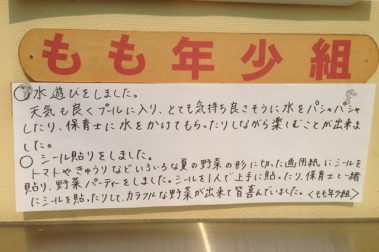 もも年少組
○水遊びをしました。
天気も良くプールに入り、とても気持ち良さそうに水をパシャパシャ
したり、保育士に水をかけてもらったりしながら楽しむことが出来ま
した。
○シール貼りをしました。
トマトやきゅうりなどいろいろな夏の野菜の形に切った画用紙にシールを
貼り、野菜パーティーをしました。シールを1人で上手に貼ったり、保育士と一緒
にシールを貼ったりして、カラフルな野菜が出来て皆喜んでいました。〈もも年少組〉